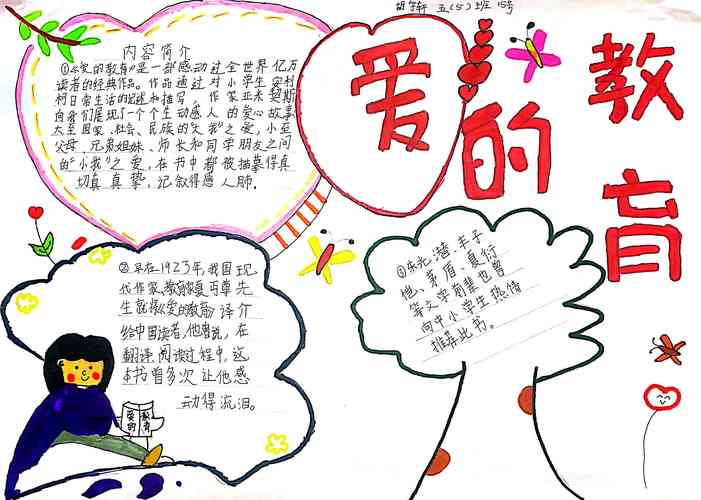 五(5)班 15号
爱的教育
内容简介
①《爱的教育》是一部感动过全世界亿万
读者的经典作品。作品通过对小学生安利
柯日常生活的记述和描写，作家亚米契斯
向我们展现了个个生动感人的爱心故事
大至国家、社会、民族的"大我"之爱，小至
父母、兄弟姐妹、师长和同学朋友之间
的"小我"之爱，在书中都被描摹得真
切真挚，记叙得感人肺。
②早在1923年，我国现
代作家、教育家夏丏尊先
生就将《爱的教育》译介
给中国读者，他曾说，在
翻译、阅读过程中，这
本书曾多次让他感
动得流泪。
爱的
教育
③朱光潜、丰子
恺、茅盾、夏衍
等文学前辈也曾
向中小学生热情
推荐此书。